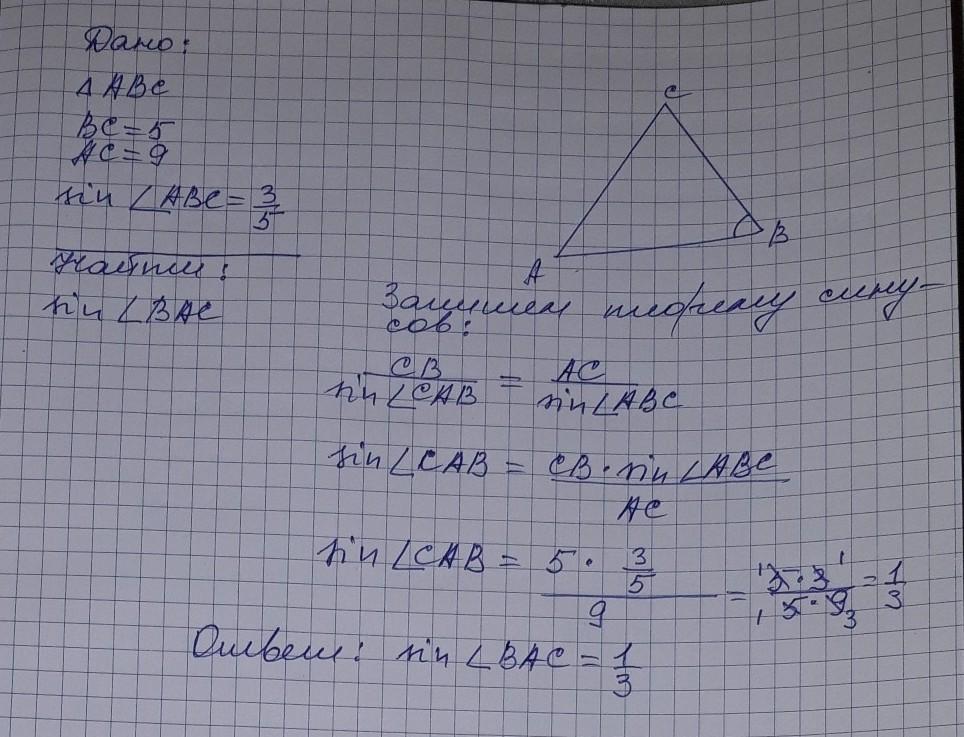 Дано:
△ABC
BC = 5
AC = 9
sin ∠ABC = 3/5
Найти:
sin ∠BAC
C
A
B
Запишем теорему сину-
сов:
CB / sin ∠CAB = AC / sin ∠ABC
sin ∠CAB = CB · sin ∠ABC / AC
sin ∠CAB = 5 · 3/5 / 9 = 5 · 3 / 5 · 9 = 1/3
1 1
1 3
Ответ: sin ∠BAC = 1/3